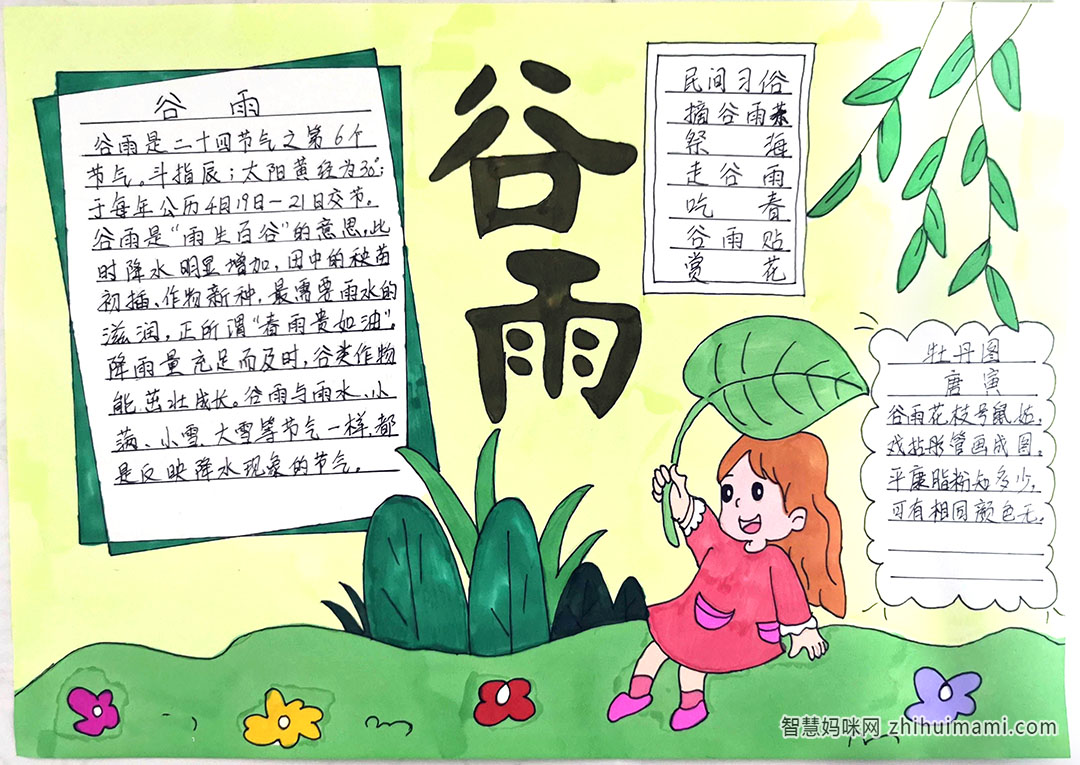 谷雨
谷雨是二十四节气之第6个
节气。斗指辰；太阳黄经为30°；
于每年公历4月19日～21日交节。
谷雨是“雨生百谷”的意思，此
时降水明显增加，田中的秧苗
初插、作物新种，最需要雨水的
滋润，正所谓“春雨贵如油”。
降雨量充足而及时，谷类作物
能茁壮成长。谷雨与雨水、小
满、小雪、大雪等节气一样，都
是反映降水现象的节气。
谷
雨
民间习俗
摘谷雨茶
祭海
走谷雨
吃春
谷雨贴
赏花
牡丹图
唐寅
谷雨花枝号鼠姑，
戏拈彤管画成图。
平康脂粉知多少，
可有相同颜色无。
智慧妈咪网 zhihuimami.com